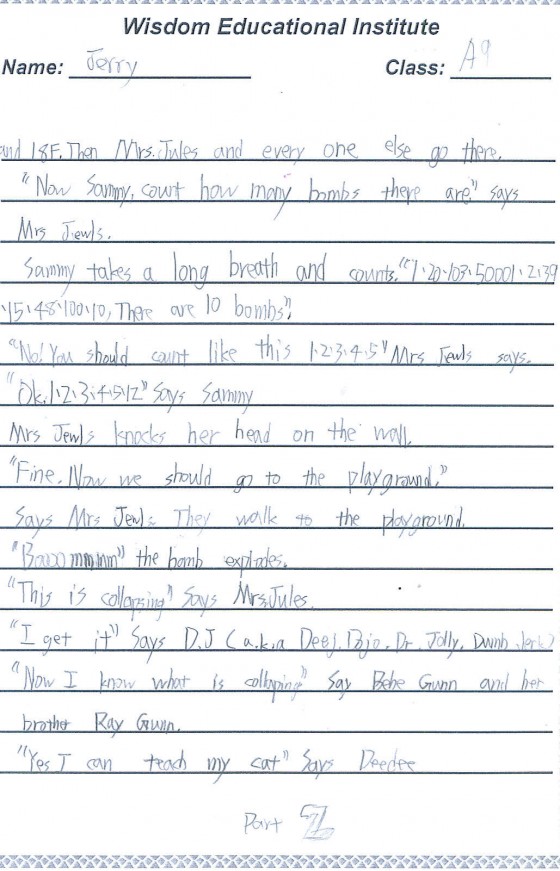 Wisdom Educational Institute
Name: Jerry Class: A9
and 18F. Then Mrs. Jules and every one else go there.
"Now Sammy, count how many bombs there are." says
Mrs Jewls.
Sammy takes a long breath and counts. "1、20、103、50001、2、39
、15、48、100、10, There are 10 bombs"!
"No! You should count like this 1、2、3、4、5" Mrs Jewls says.
"Ok. 1、2、3、4、5、12" Says Sammy
Mrs Jewls knocks her head on the wall.
"Fine. Now we should go to the playground."
Says Mrs Jewls They walk to the playground.
"Baooommmmm" the bomb explodes.
"This is collapsing" Says Mrs. Jules.
"I get it" Says D.J (a.k.a Deej, Bjo, Dr. Jolly, Dumb Jerk)
"Now I know what is collaping" Say Bebe Gunn and her
brother Ray Gunn.
"Yes I can teach my cat" Says Deedee
Part